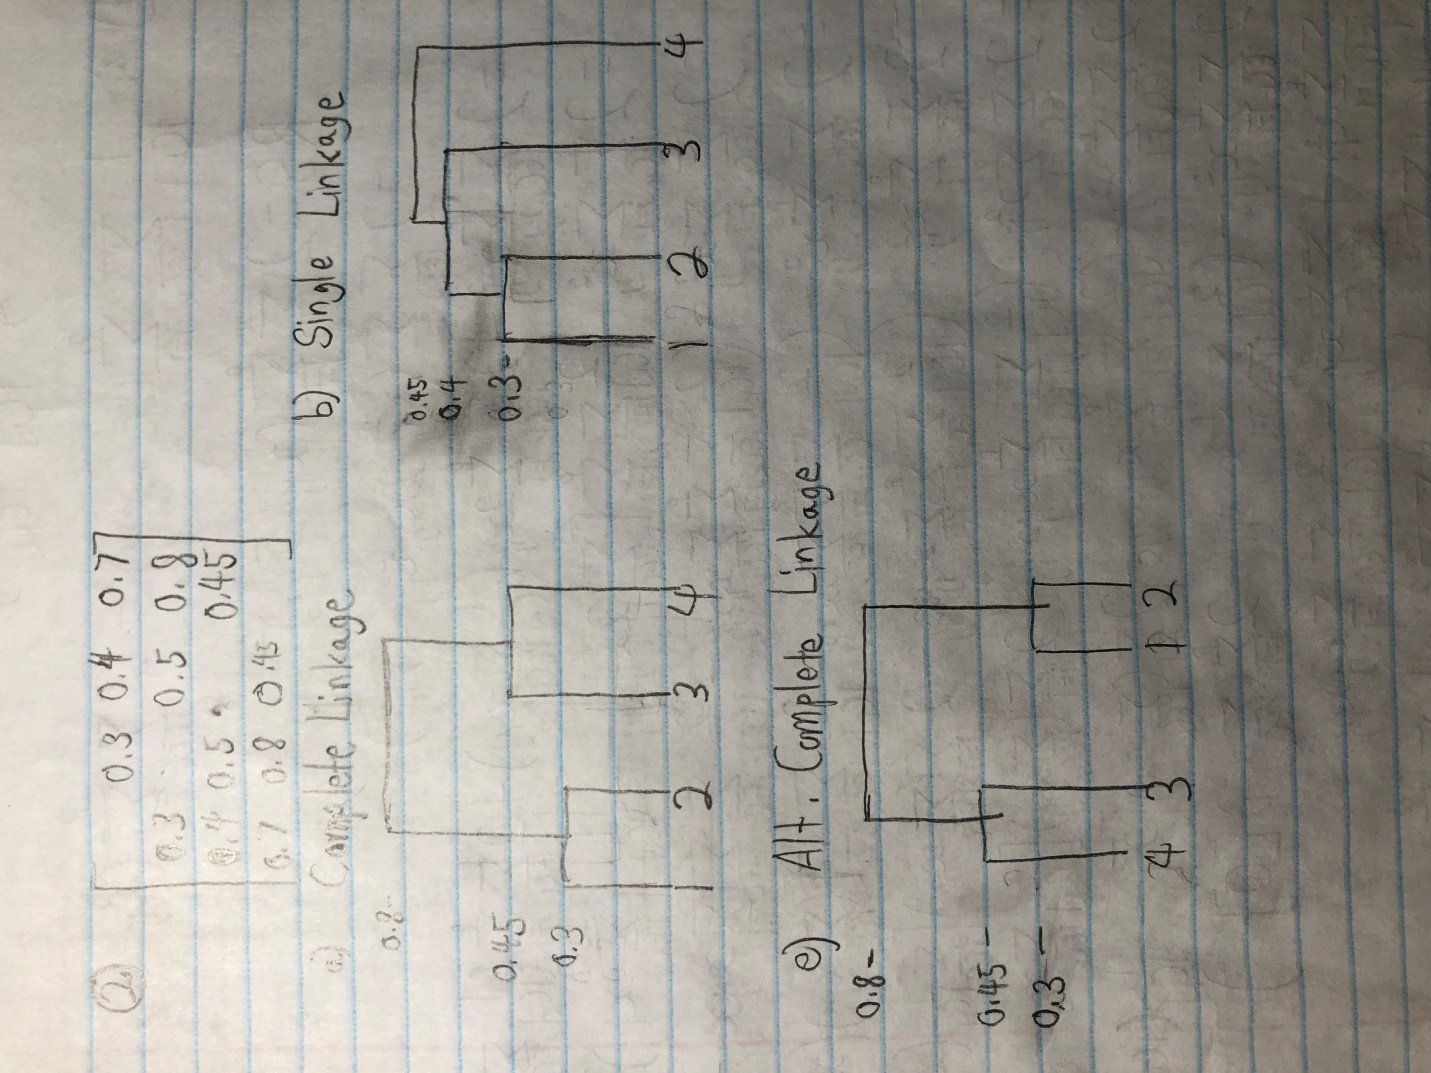 2.
0.3 0.4 0.7
0.3 0.5 0.8
0.4 0.5 0.45
0.7 0.8 0.45
a) Complete Linkage
0.8-
0.45
0.3
1 2 3 4
b) Single Linkage
0.45
0.4
0.3-
1 2 3 4
e) Alt. Complete Linkage
0.8-
0.45-
0.3-
4 3 1 2